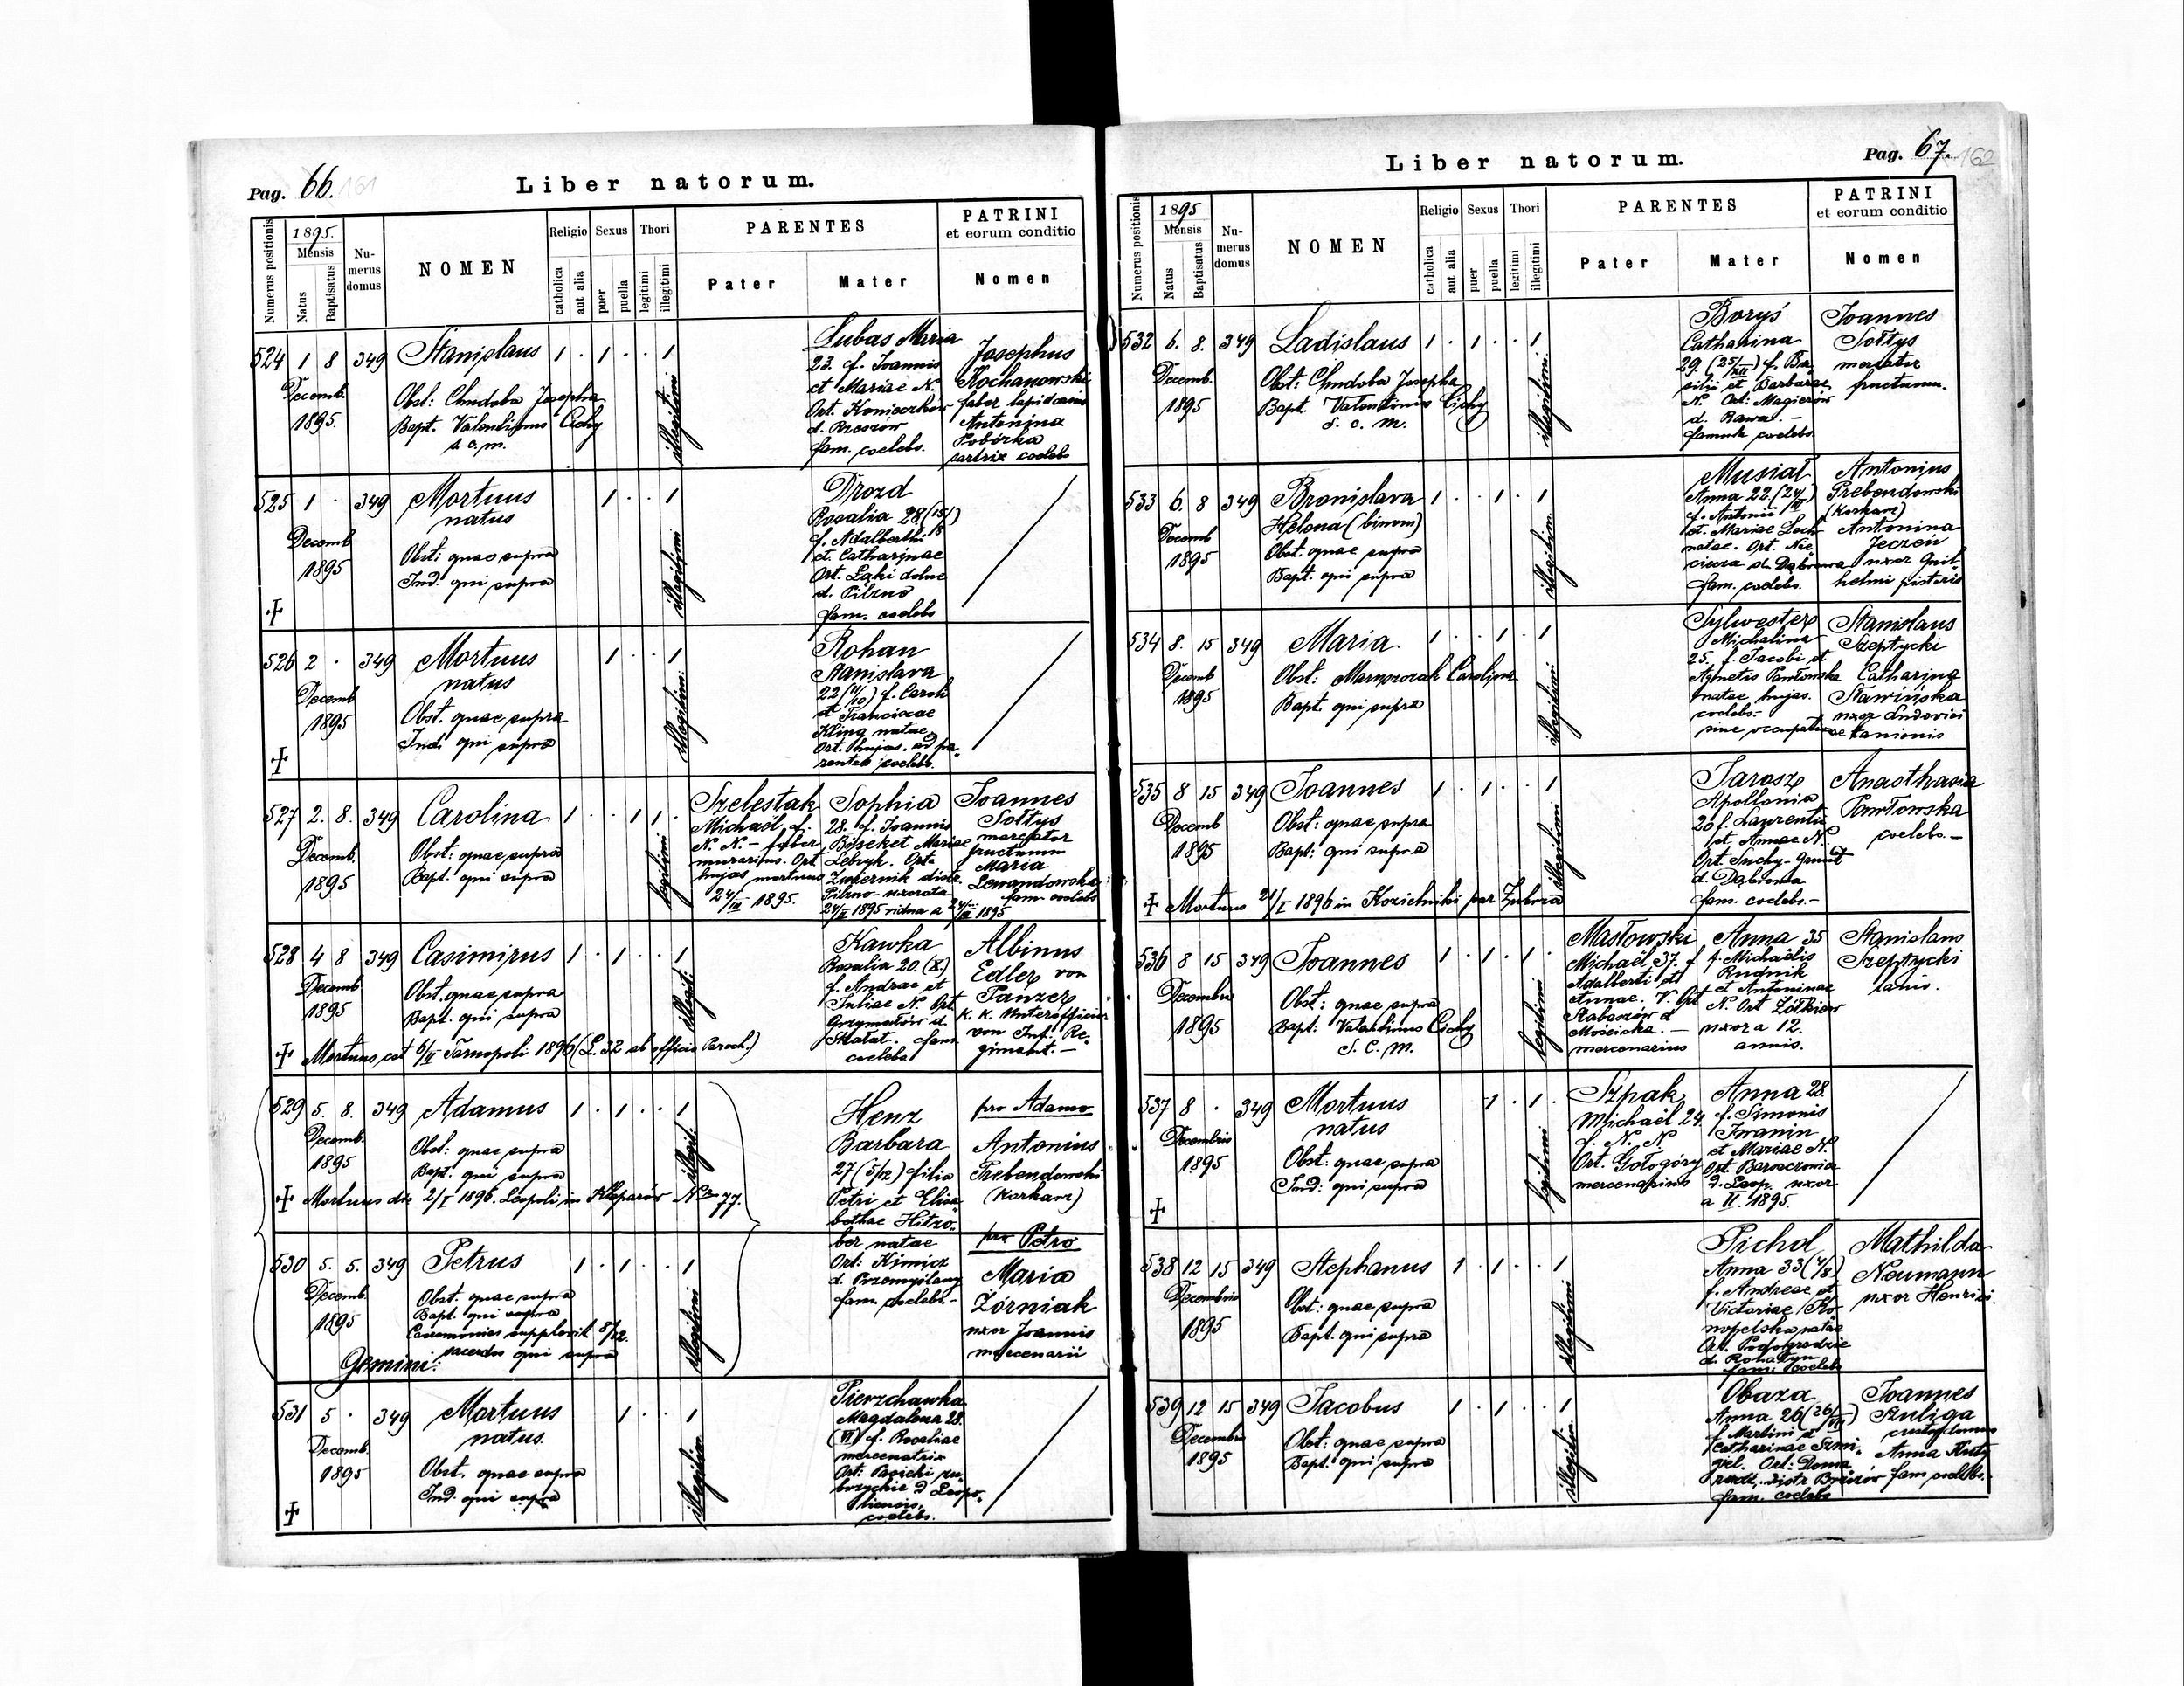 Pag. 66. 161
Liber natorum.
Numerus positionis
1895.
Mensis
Natus
Baptisatus
Nu-
merus
domus
NOMEN
Religio
catholica
aut alia
Sexus
puer
puella
Thori
legitimi
illegitimi
PARENTES
Pater
Mater
PATRINI
et eorum conditio
Nomen
524 1 8 349 Stanislaus 1 . 1 . . 1
Decemb.
1895.
Obst: Chudoba Josepha
Bapt. Valentinus Cichy
s.c.m.
illegitimi
Lubas Maria
23. f. Joannis
et Mariae N.
Ort. Konieczków
d. Rzeszów
fam. coelebs.
Josephus
Kochanowski
faber lapidarius
Antonina
Pobórka
sartrix coelebs
525 1 . 349 Mortuus 1 . . 1
natus
Decemb
1895
Obst: quae supra
Ind. qui supra
illegitimi
Drozd
Rosalia 28
f. Adalberthi
et Catharinae
Ort. Łęki dolne
d. Pilzno
fam. coelebs
526 2 . 349 Mortuus 1 . . 1
natus
Decemb
1895
Obst. quae supra
Ind. qui supra
illegitimi
Rohan
Stanislava
22 (11/10) f. Caroli
et Franciscae
Kling natae
Ort. hujas. ad pa-
rentes coelebs.
527 2. 8. 349 Carolina 1 . . 1 1 .
Decemb.
1895
Obst: quae supra
Bapt. qui supra
legitimi
Szelestak
Michaël f.
N. N. – faber
murarius. Ort
hujas mortuus
24/III 1895.
Sophia
28. f. Joannis
Mariae
Żwiernik distr
Pilzno – uxorata
24/II 1895 vidua a 24/III 1895
Joannes
Sołtys
mercator
fructuum
Maria
Lewandowska
fam. coelebs
528 4 8 349 Casimirus 1 . 1 . . 1
Decemb
1895
Obst. quae supra
Bapt. qui supra
Mortuus est 6/II Tarnopoli 1896 (L. 32 ab officio Paroch.)
illegit:
Kawka
Rosalia 20. (X.)
f. Andrae et
Juliae N. Ort
Grzymałów d.
Skałat. fam
coelebs
Albinus
Edler von
Panzer
K. K. Unterofficier
von Inf. Re-
giment. –
529 5. 8. 349 Adamus 1 . 1 . . 1
Decemb.
1895
Obst: quae supra
Bapt. qui supra
Mortuus die 2/I 1896. Leopoli in Kleparów Nro 77.
illegit:
Henz
Barbara
27 (5/12) filia
Petri et Elisa-
bethae Hitzo-
ber natae
Ort: Kimirz
d. Przemyślany
fam. coelebs. –
pro Adamo
Antonius
Trebendowski
(Karkarz)
530 5. 5. 349 Petrus 1 . 1 . . 1
Decemb.
1895
Obst. quae supra
Bapt. qui supra
Caeremonias supplevit 8/12.
sacerdos qui supra
Gemini:
illegitimi
pro Petro
Maria
Żórniak
uxor Joannis
mercenarii
531 5 . 349 Mortuus 1 . . 1
natus.
Decemb.
1895
Obst. quae supra
Ind. qui supra
illegitim
Pierzchawka
Magdalena 28.
(VI) f. Rosaliae
mercenatrix
Ort: Basicki
d Leopo-
liensis.
coelebs.
Pag. 67. 162
Liber natorum.
Numerus positionis
1895
Mensis
Natus
Baptisatus
Nu-
merus
domus
NOMEN
Religio
catholica
aut alia
Sexus
puer
puella
Thori
legitimi
illegitimi
PARENTES
Pater
Mater
PATRINI
et eorum conditio
Nomen
532 6. 8. 349 Ladislaus 1 . 1 . . 1
Decemb.
1895
Obst: Chudoba Josepha
Bapt. Valentinus Cichy
S. C. M.
illegitimi
Boryś
Catharina
29. (25/XII) f. Ba-
silii et Barbarae
N. Ort: Magierów
d. Rawa. –
famula coelebs.
Joannes
Sołtys
mercator
fructuum.
533 6. 8 349 Bronislava 1 . . 1 . 1
Helena (binom)
Decemb
1895
Obst. quae supra
Bapt. qui supra
illegitim.
Musiał
Anna 22.
f. Antonii
et. Mariae Lech
natae. Ort. Nie
ciecza d. Dąbrowa
fam. coelebs.
Antonius
Trebendowski
(Karkarz)
Antonina
Jeczeń
uxor Guil-
helmi pistoris
534 8. 15 349 Maria 1 . . 1 . 1
Decemb
1895
Obst: Carolina
Bapt. qui supra
illegitimi
Sylwester
Michalina
25. f. Jacobi et
Agnetis Pawłowska
natae hujas.
coelebs. –
sine occupatione
Stanislaus
Szeptycki
Catharina
Stawińska
uxor Ludovici
lanionis
535 8 15 349 Joannes 1 . 1 . . 1
Decemb
1895
Obst: quae supra
Bapt: qui supra
Mortuus 21/I 1896 in Kozielniki par Zubrza
illegitimi
Jarosz
Apollonia
20 f. Laurentii
et Annae N.
Ort Suchy-Grunt
d. Dąbrowa
fam. coelebs. –
Anasthasia
Pawłowska
coelebs. –
536 8 15 349 Joannes 1 . 1 . 1 .
Decembris
1895
Obst: quae supra
Bapt: Valentinus Cichy
S. C. M.
legitimi
Masłowski
Michaël 37. f
Adalberti et
Annae. V. Ort
d
Mościska. –
mercenarius
Anna 35
f. Michaëlis
Rudnik
et Antoninae
N. Ort Żółkiew
uxor a 12.
annis.
Stanislaus
Szeptycki
lanio.
537 8 . 349 Mortuus 1 . 1 .
natus
Decembris
1895
Obst: quae supra
Ind: qui supra
legitimi
Szpak
Michaël 24.
f. N. N
Ort. Gołogóry
mercenarius
Anna 28.
f. Simonis
Iwanin
et Mariae N.
Ort. Barszczowia
d. Leop. uxor
a II. 1895.
538 12 15 349 Stephanus 1 . 1 . . 1
Decembris
1895
Obst: quae supra
Bapt. qui supra
illegitimi
Pichol
Anna 33 (4/8)
f. Andreae et
Victoriae Ko-
nopelska natae
Ort. Podgrodzie
d. Rohatyn
fam. coelebs
Mathilda
Neumann
uxor Henrici.
539 12 15 349 Jacobus 1 . 1 . . 1
Decembris
1895
Obst: quae supra
Bapt. qui supra
illegitim
Obaza
Anna 26 (26/VII)
f Martini et
Catharinae Szmi-
giel. Ort: Doma-
radz, distr Brzozów
fam. coelebs
Joannes
Szuliga
Anna
fam coelebs.